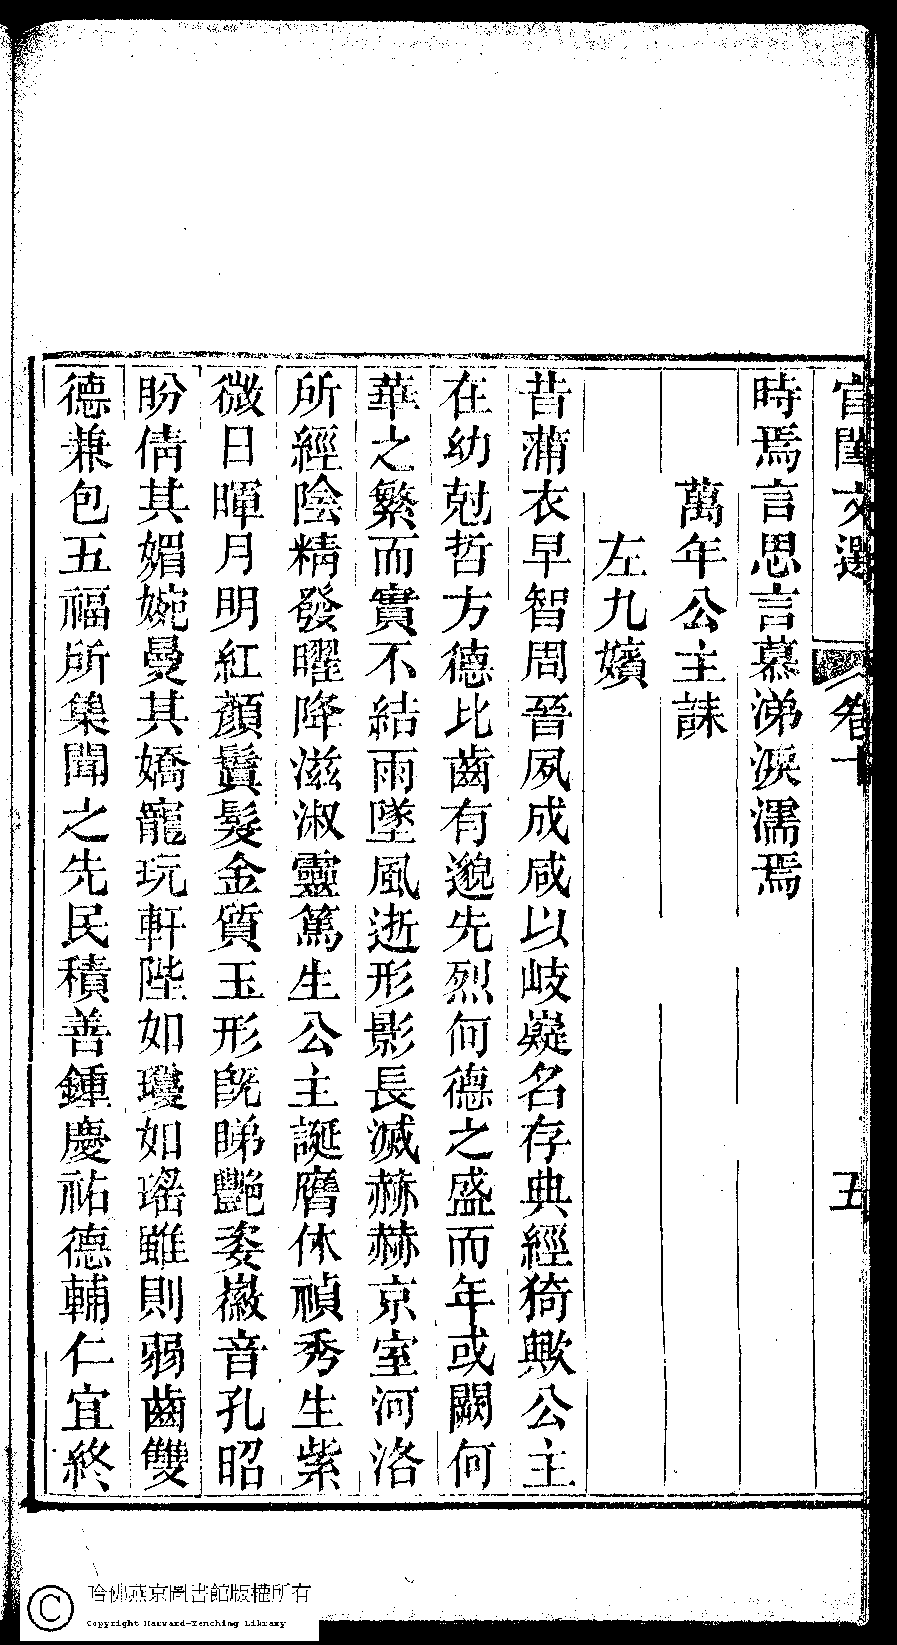 宮閨文選 卷十 五
時焉言思言慕涕淚濡焉
萬年公主誄
左九嬪
昔蒲衣早智周晉夙成咸以岐嶷名存典經猗歟公主
在幼尅哲方德比齒有邈先烈何德之盛而年或闕何
華之繁而實不結雨墜風逝形影長滅赫赫京室河洛
所經陰精發曜降滋淑靈篤生公主誕膺休禎秀生紫
微日暉月明紅顏鬒髮金質玉形旣睇豔姿徽音孔昭
盼倩其媚婉曼其嬌寵玩軒陛如瓊如瑤雖則弱齒雙
德兼包五福所集聞之先民積善鍾慶祐德輔仁宜終
哈佛燕京圖書館版權所有
Copyright Harvard-Yenching Library